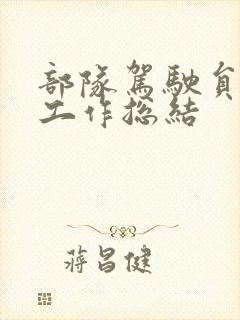 部隊駕駛員
工作總結
蔣昌健